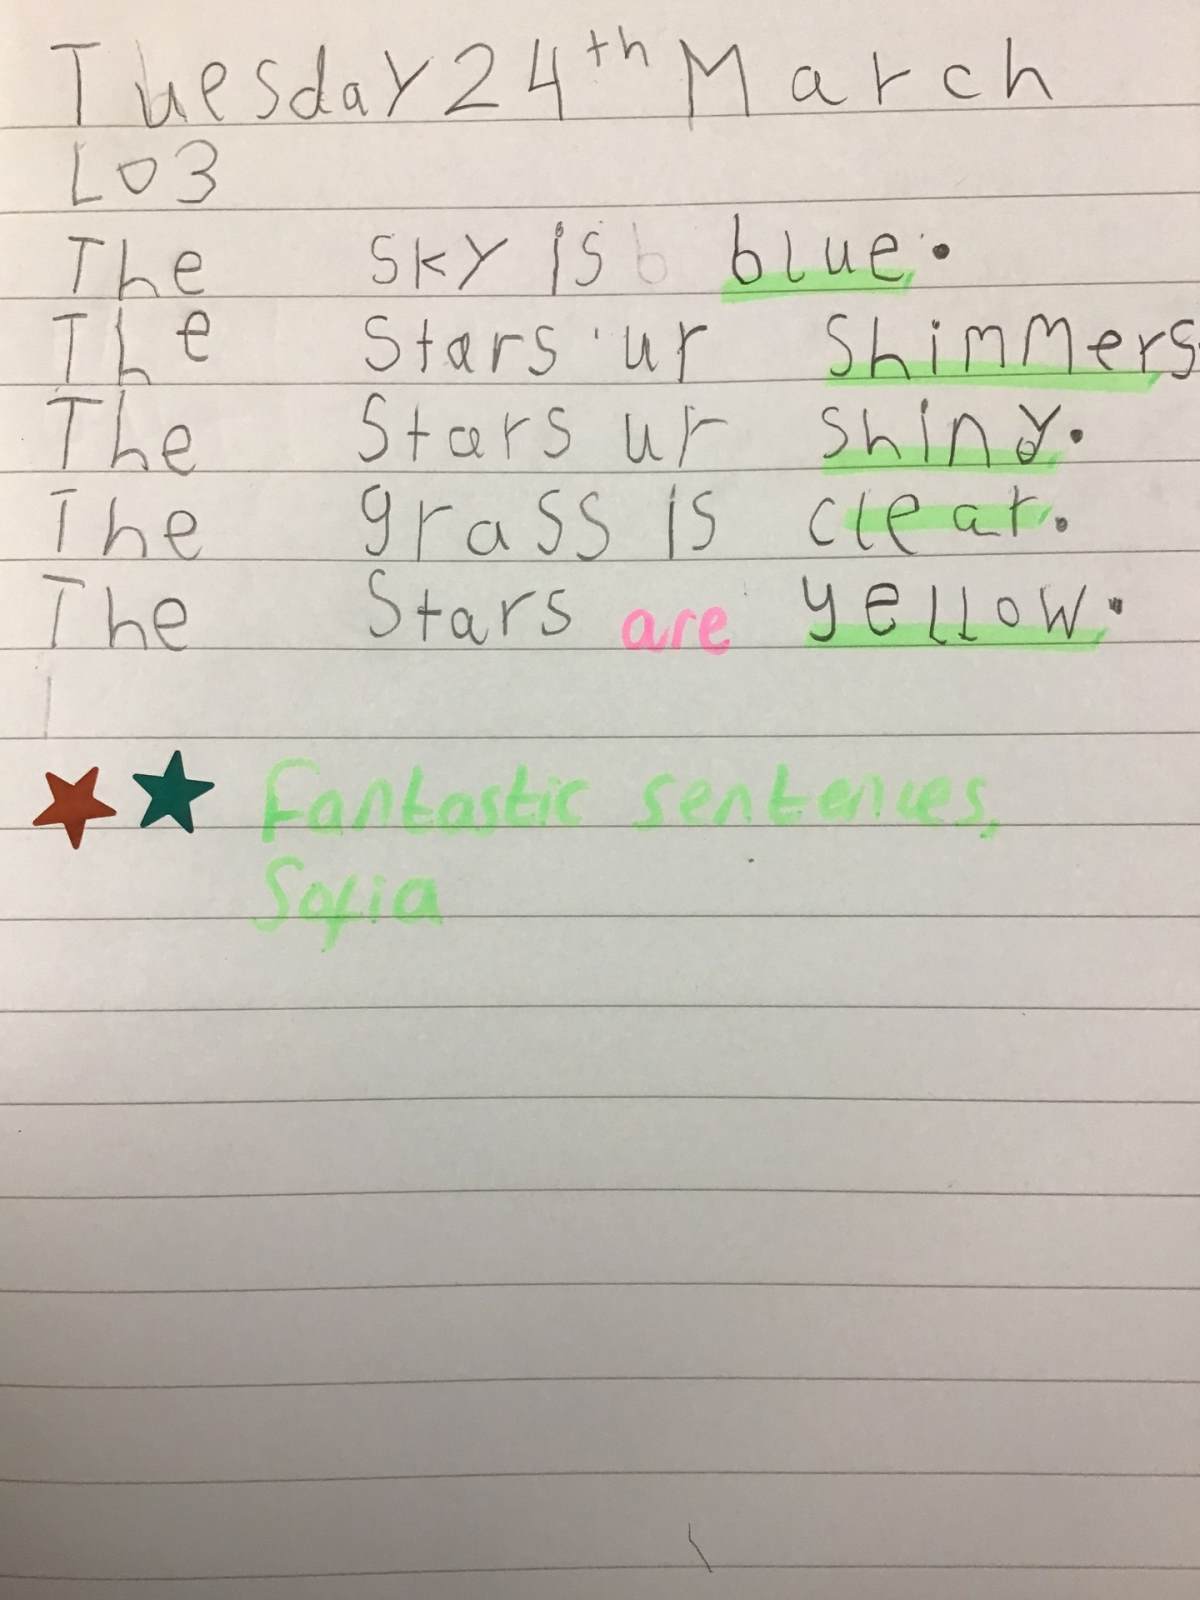 Tuesday 24th March
LO3
The sky is blue.
The Stars ur shimmers.
The Stars ur shiny.
The grass is clear.
The Stars are yellow.
Fantastic sentences,
Sofia